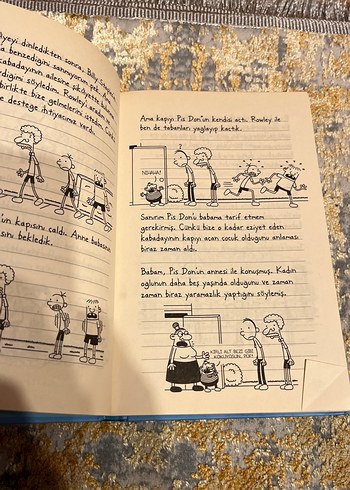 dinledikten sonra, Billy
benzediğini sanmıyorum pek. A
kabadayının ailesine şikâyette
söyledim. Rowley'i aradım
birlikte bize gelmelerini istedim. Çünkü
desteğe ihtiyacımız vardı.
kapısını çaldı. Anne babasının
bekledik.
Ama kapıyı Pis Don'un kendisi açtı. Rowley ile
ben de tabanları yağlayıp kaçtık.
Sanırım Pis Don'u babama tarif etmem
gerekirmiş. Çünkü bize o kadar eziyet eden
kabadayının kapıyı açan çocuk olduğunu anlaması
biraz zaman aldı.
Babam, Pis Don'un annesi ile konuşmuş. Kadın
oğlunun daha beş yaşında olduğunu ve zaman
zaman biraz yaramazlık yaptığını söylemiş.
KİRLİ ALT BEZİ GİBİ
KOKUYOSUN, PÖH!